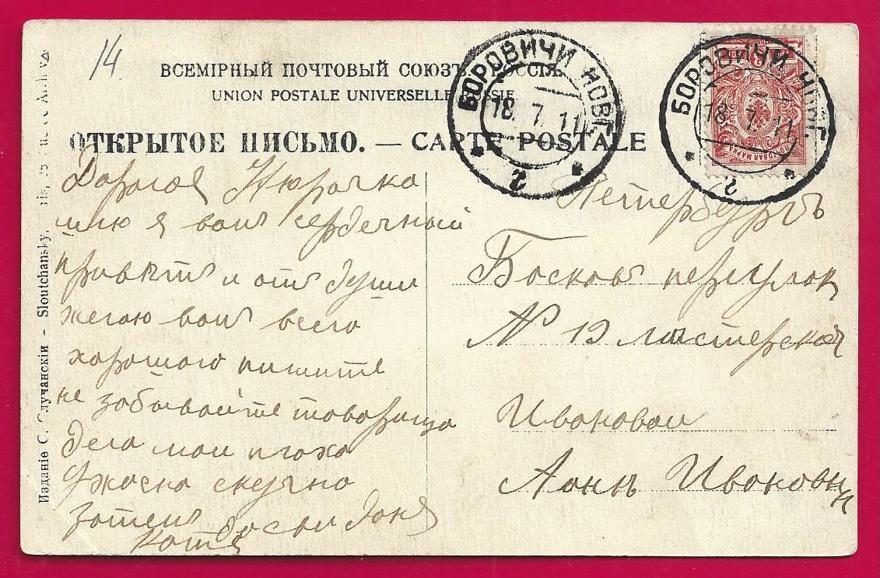 14
ВСЕМІРНЫЙ ПОЧТОВЫЙ СОЮЗЪ. РОССІЯ.
UNION POSTALE UNIVERSELLE. RUSSIE
ОТКРЫТОЕ ПИСЬМО. — CARTE POSTALE
БОРОВИЧИ НОВГ.
18.7.11
2
БОРОВИЧИ НОВГ.
18.7.11
2
Дорогоя Нюрочка
шлю я вамъ сердечный
приветъ и отъ души
жегаю вамъ всего
хорошого пишите
не зобывайте товорища
дела мои плоха
Ужасна скучно
затемъ досви доня
Котя
Петербургъ
Босковъ переулок
№ 19 мастерская
Ивоновой
Аннѣ Ивоновнѣ
Изданіе С. Случанскій - Sloutchansky,